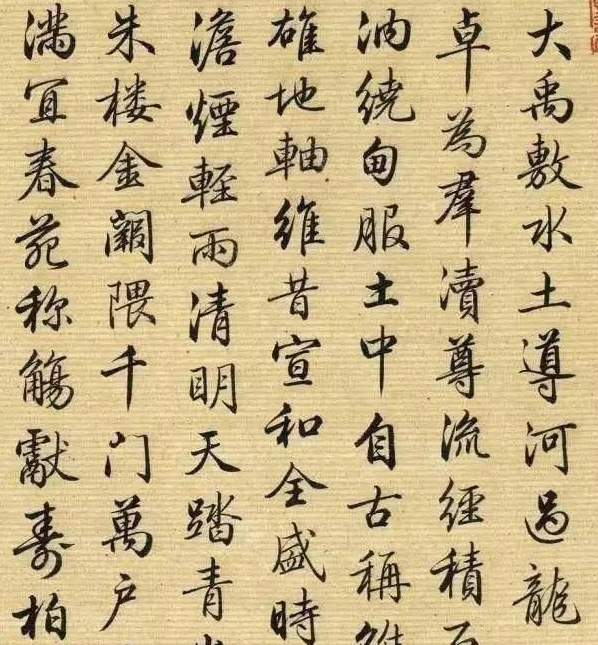 大禹敷水土導河過龍
卓為羣瀆尊流經積石
汭繞甸服土中自古稱雄
雄地軸維昔宣和全盛時
澹煙輕雨清明天踏青
朱楼金闕隈千門萬户
滿宜春苑称觴獻壽柏